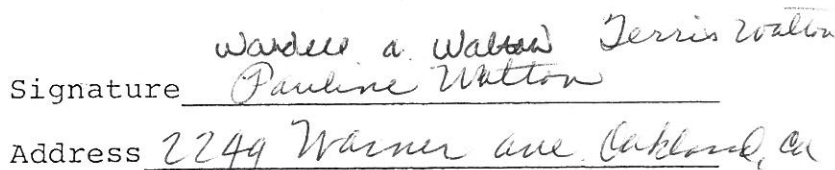 Wardell a. Walton Terris Walton
Signature Pauline Walton
Address 2249 Warner ave. Oakland, Ca